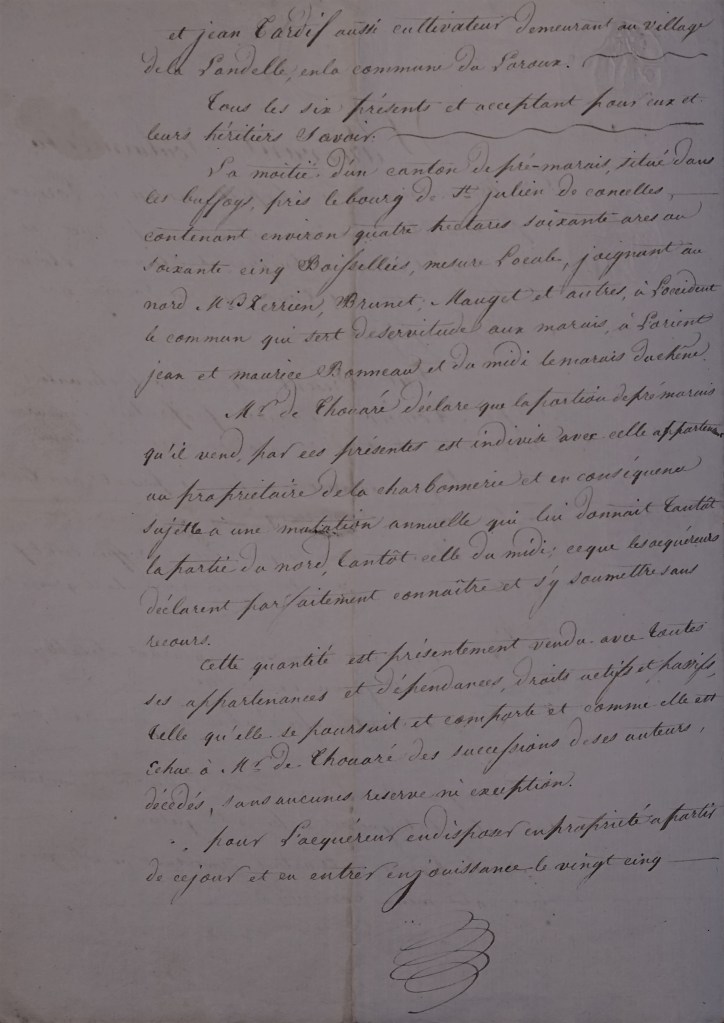 et jean Tardif aussi cultivateur demeurant au village
de la Landelle, en la commune du Loroux.
Tous les six présents et acceptant pour eux et
leurs héritiers savoir.
La moitié d'un canton de pré-marais, situé dans
les buffoys, près le bourg de St julien de concelles,
contenant environ quatre hectares soixante ares ou
soixante cinq Boissellées, mesure Locale, joignant au
nord Mrs Terrien, Brunet, Mauget et autres, à L'occident
le commun qui sert de servitude aux marais, à L'orient
jean et maurice Bonneau et du midi le marais du chêne.
Mr. de Thouaré déclare que la portion de pré marais
qu'il vend, par ces présentes est indivise avec celle appartenant
au propriétaire de la charbonnerie et en conséquence
sujette à une mutation annuelle qui lui donnait Tantôt
la partie du nord, Tantôt celle du midi; ce que les acquéreurs
déclarent parfaitement connaître et s'y soumettre sans
recours.
Cette quantité est présentement vendu avec Toutes
ses appartenances et dépendances, droits actifs et passifs,
Telle qu'elle se poursuit et comporte et comme elle est
échue à Mr. de Thouaré des successions de ses auteurs,
décédés, sans aucunes reserve ni exception.
pour L'acquéreur en disposer en propriété a partir
de ce jour et en entrer en jouissance le vingt cinq